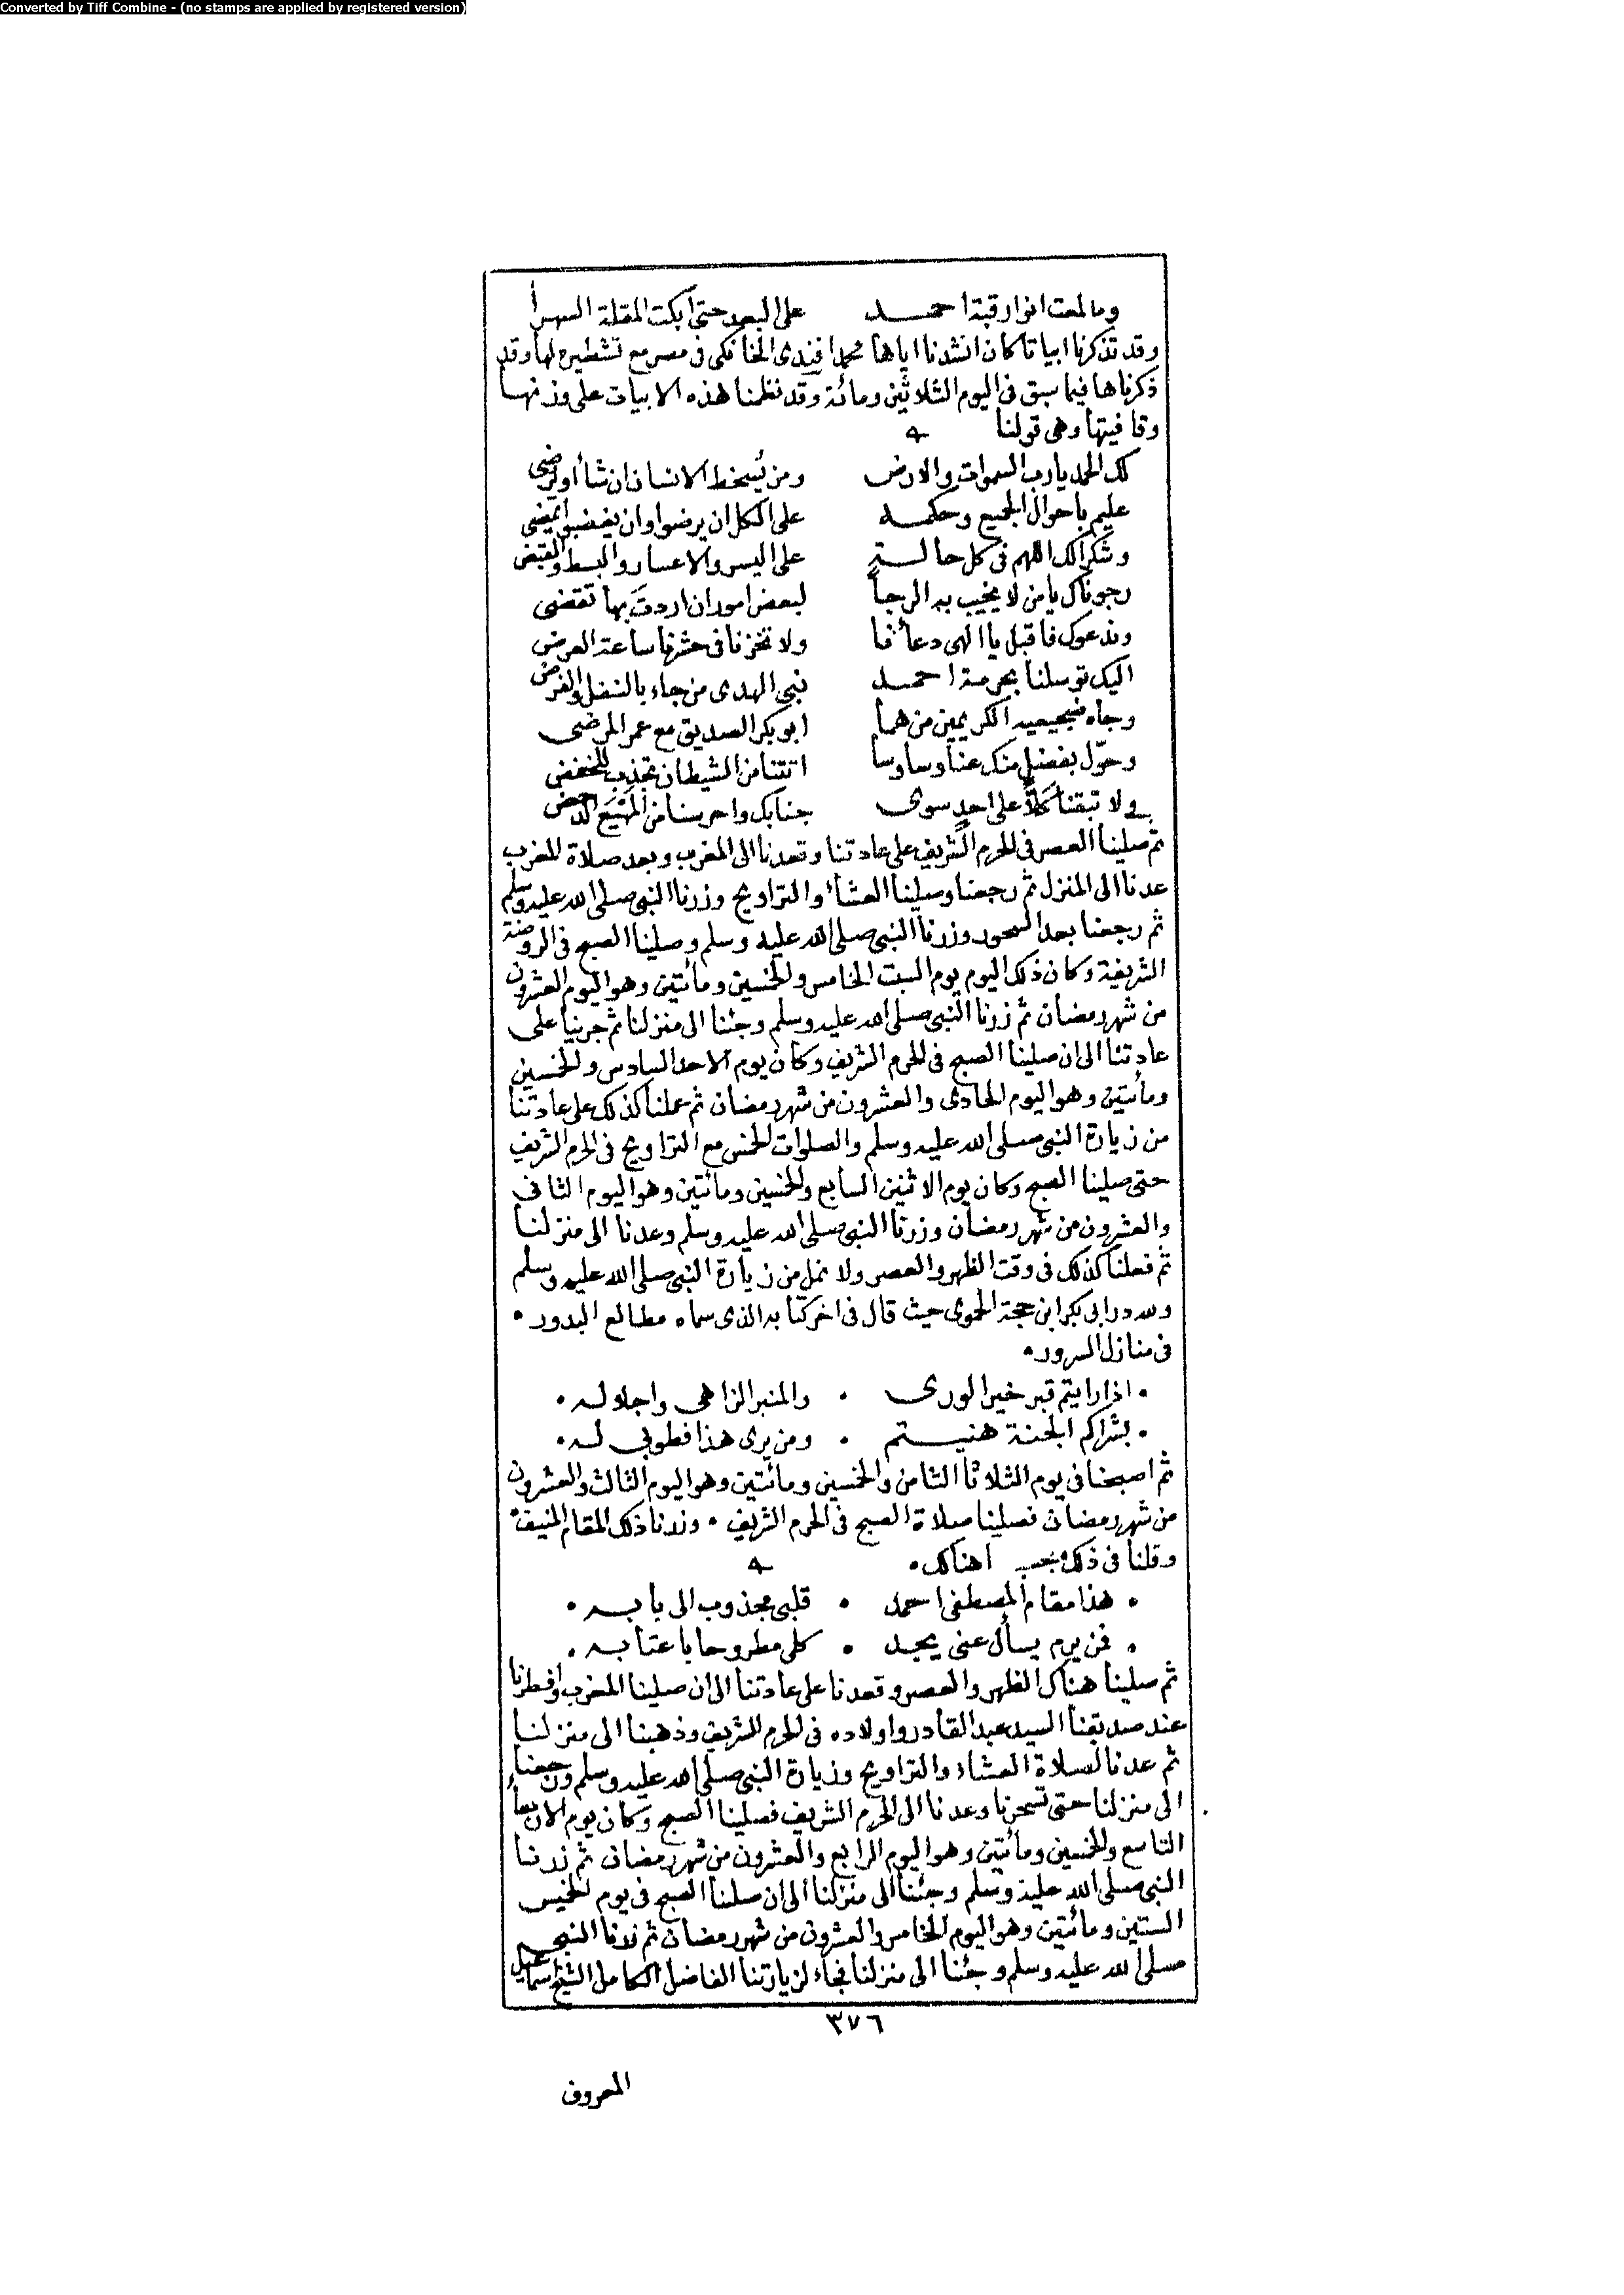 Converted by Tiff Combine - (no stamps are applied by registered version)
وما لمعت انوار قبة احمد على البعد حتى ابكت المقلة السهرا
وقد تذكرنا ابياتا كان انشدنا اياها محمد افندى الخانكى فى مصر مع تشطيره لها وقد
ذكرناها فيما سبق فى اليوم الثلاثين ومائة وقد نظمنا هذه الابيات على وزنها
وقافيتها وهى قولنا
لك الحمد يا رب السموات والارض ومن يُسخط الانسان ان شأ او يرضى
عليم باحوال الجميع وحكمه على الكل ان يرضوا وان يغضبوا يمضى
وشكرا لك اللهم فى كل حالة على اليسر والاعسار والبسط والقبض
رجوناك يا من لا يخيب به الرجا لبعض امور ان اردتَ بها تقضى
وندعوك فاقبل يا الهى دعأنا ولا تخزنا فى حشرنا ساعة العرض
اليك توسلنا بحرمة احمد نبى الهدى من جاء بالنفل والفرض
وجاه ضجيعيه الكريمين من هما ابو بكر الصديق مع عمر المرضى
وحوّل بفضل منك عنا وساوسا اتتنا من الشيطان تجذب للخفض
ولا تبقنا كَلاًّ على احدٍ سوى جنابك واحرسنا من المَهْيَع الدحض
ثم صلينا العصر فى الحرم الشريف على عادتنا وقعدنا الى المغرب وبعد صلاة المغرب
عدنا الى المنزل ثم رجعنا وصلينا العشأ والتراويح وزرنا النبى صلى الله عليه وسلم
ثم رجعنا بعد السحور وزرنا النبى صلى الله عليه وسلم وصلينا الصبح فى الروضة
الشريفة وكان ذلك اليوم يوم السبت الخامس والخمسين ومائتين وهو اليوم العشرون
من شهر رمضان ثم زرنا النبى صلى الله عليه وسلم وجئنا الى منزلنا ثم جرينا على
عادتنا الى ان صلينا الصبح فى الحرم الشريف وكان يوم الاحد السادس والخمسين
ومأتين وهو اليوم الحادى والعشرون من شهر رمضان ثم عملنا كذلك على عادتنا
من زيارة النبى صلى الله عليه وسلم والصلوات الخمس مع التراويح فى الحرم الشريف
حتى صلينا الصبح وكان يوم الاثنين السابع والخمسين ومائتين وهو اليوم الثانى
والعشرون من شهر رمضان وزرنا النبى صلى الله عليه وسلم وعدنا الى منزلنا
ثم فعلنا كذلك فى وقت الظهر والعصر ولا نمل من زيارة النبى صلى الله عليه وسلم
ولله در ابى بكر ابن حجة الحموى حيث قال فى اخر كتابه الذى سماه مطالع البدور •
فى منازل السرور •
• اذا رايتم قبر خير الورى • والمنبر الزاهى واجلاله •
• بشراكم الجنة هنيتم • ومن يرى هذا فطوبى له •
ثم اصبحنا فى يوم الثلاثا الثامن والخمسين ومائتين وهو اليوم الثالث والعشرون
من شهر رمضان فصلينا صلاة الصبح فى الحرم الشريف • وزرنا ذلك المقام المنيف •
وقلنا فى ذلك هناك •
• هذا مقام المصطفى احمد • قلبى مجذوب الى بابه •
• فمن يرم يسأل عنى يجد • كلى مطروحا باعتابه •
ثم صلينا هناك الظهر والعصر وقعدنا على عادتنا الى ان صلينا المغرب وافطرنا
عند صديقنا السيد عبد القادر واولاده فى الحرم الشريف وذهبنا الى منزلنا
ثم عدنا لصلاة العشاء والتراويح وزيارة النبى صلى الله عليه وسلم ورجعنا
الى منزلنا حتى تسحرنا وعدنا الى الحرم الشريف فصلينا الصبح وكان يوم الاربعأ
التاسع والخمسين ومأتين وهو اليوم الرابع والعشرون من شهر رمضان ثم زرنا
النبى صلى الله عليه وسلم وجئنا الى منزلنا الى ان صلينا الصبح فى يوم الخميس
الستين ومائتين وهو اليوم الخامس والعشرون من شهر رمضان ثم زرنا النبى
صلى الله عليه وسلم وجئنا الى منزلنا فجاء لزيارتنا الفاضل الكامل الشيخ اسماعيل
٣٧٦
المعروف